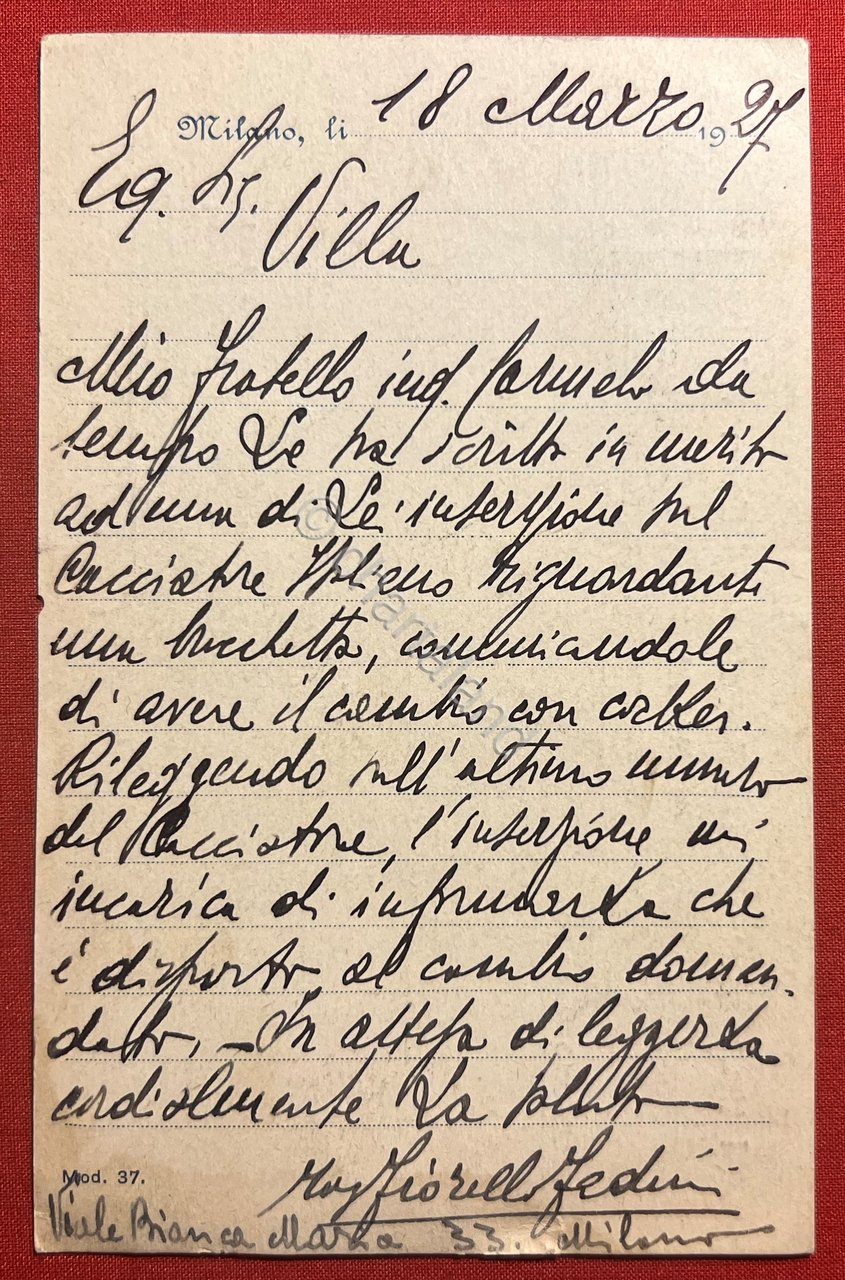 Milano, li 18 Marzo 1927
Eg. Sig.
Villa
Mio fratello ing. Carmelo da
tempo Le ha scritto in merito
ad una di Lei inserzione sul
Cacciatore Italiano riguardanti
una brocchetta, comunicandole
di avere il cambio con cocker.
Rileggendo sull'ultimo numero
del Cacciatore, l'inserzione mi
incarica di informarLa che
è disposto al cambio doman-
dato. - In attesa di leggerLa
cordialmente La saluto
Rag Fiorello
Mod. 37.
Viale Bianca Maria 33. Milano